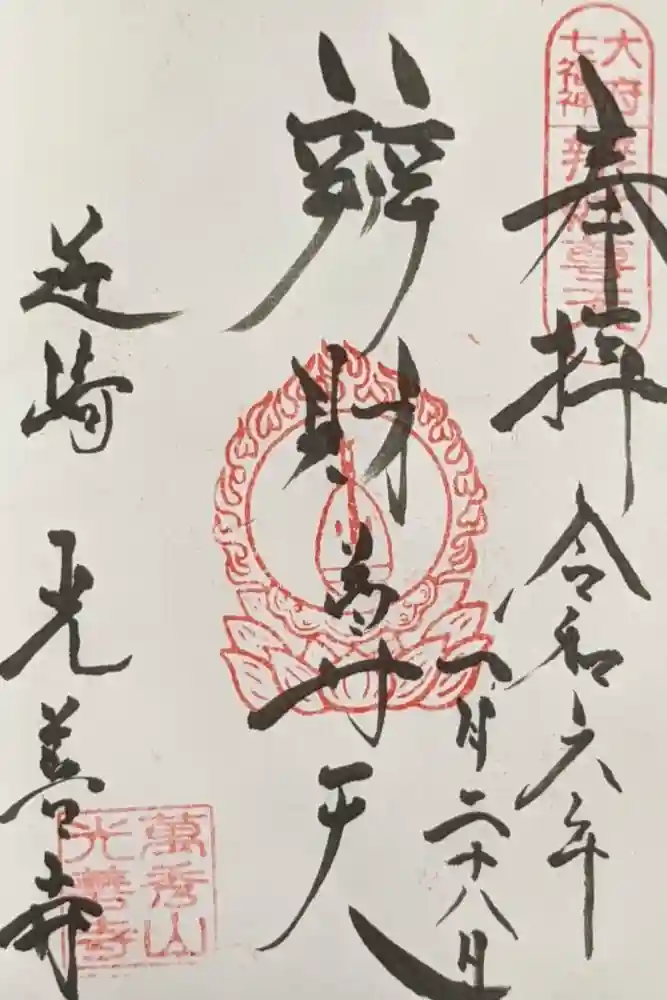 大府
七福神
辨財尊天
奉拝
令和六年
八月二十八日
辨財尊天
近崎 光善寺
萬秀山
光善寺